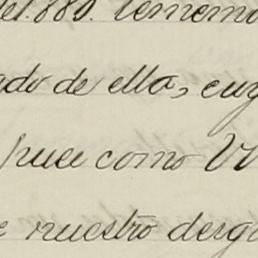 del. 880. tenemo
ado de ella, cuy
puse como VV
e nuestro desgr